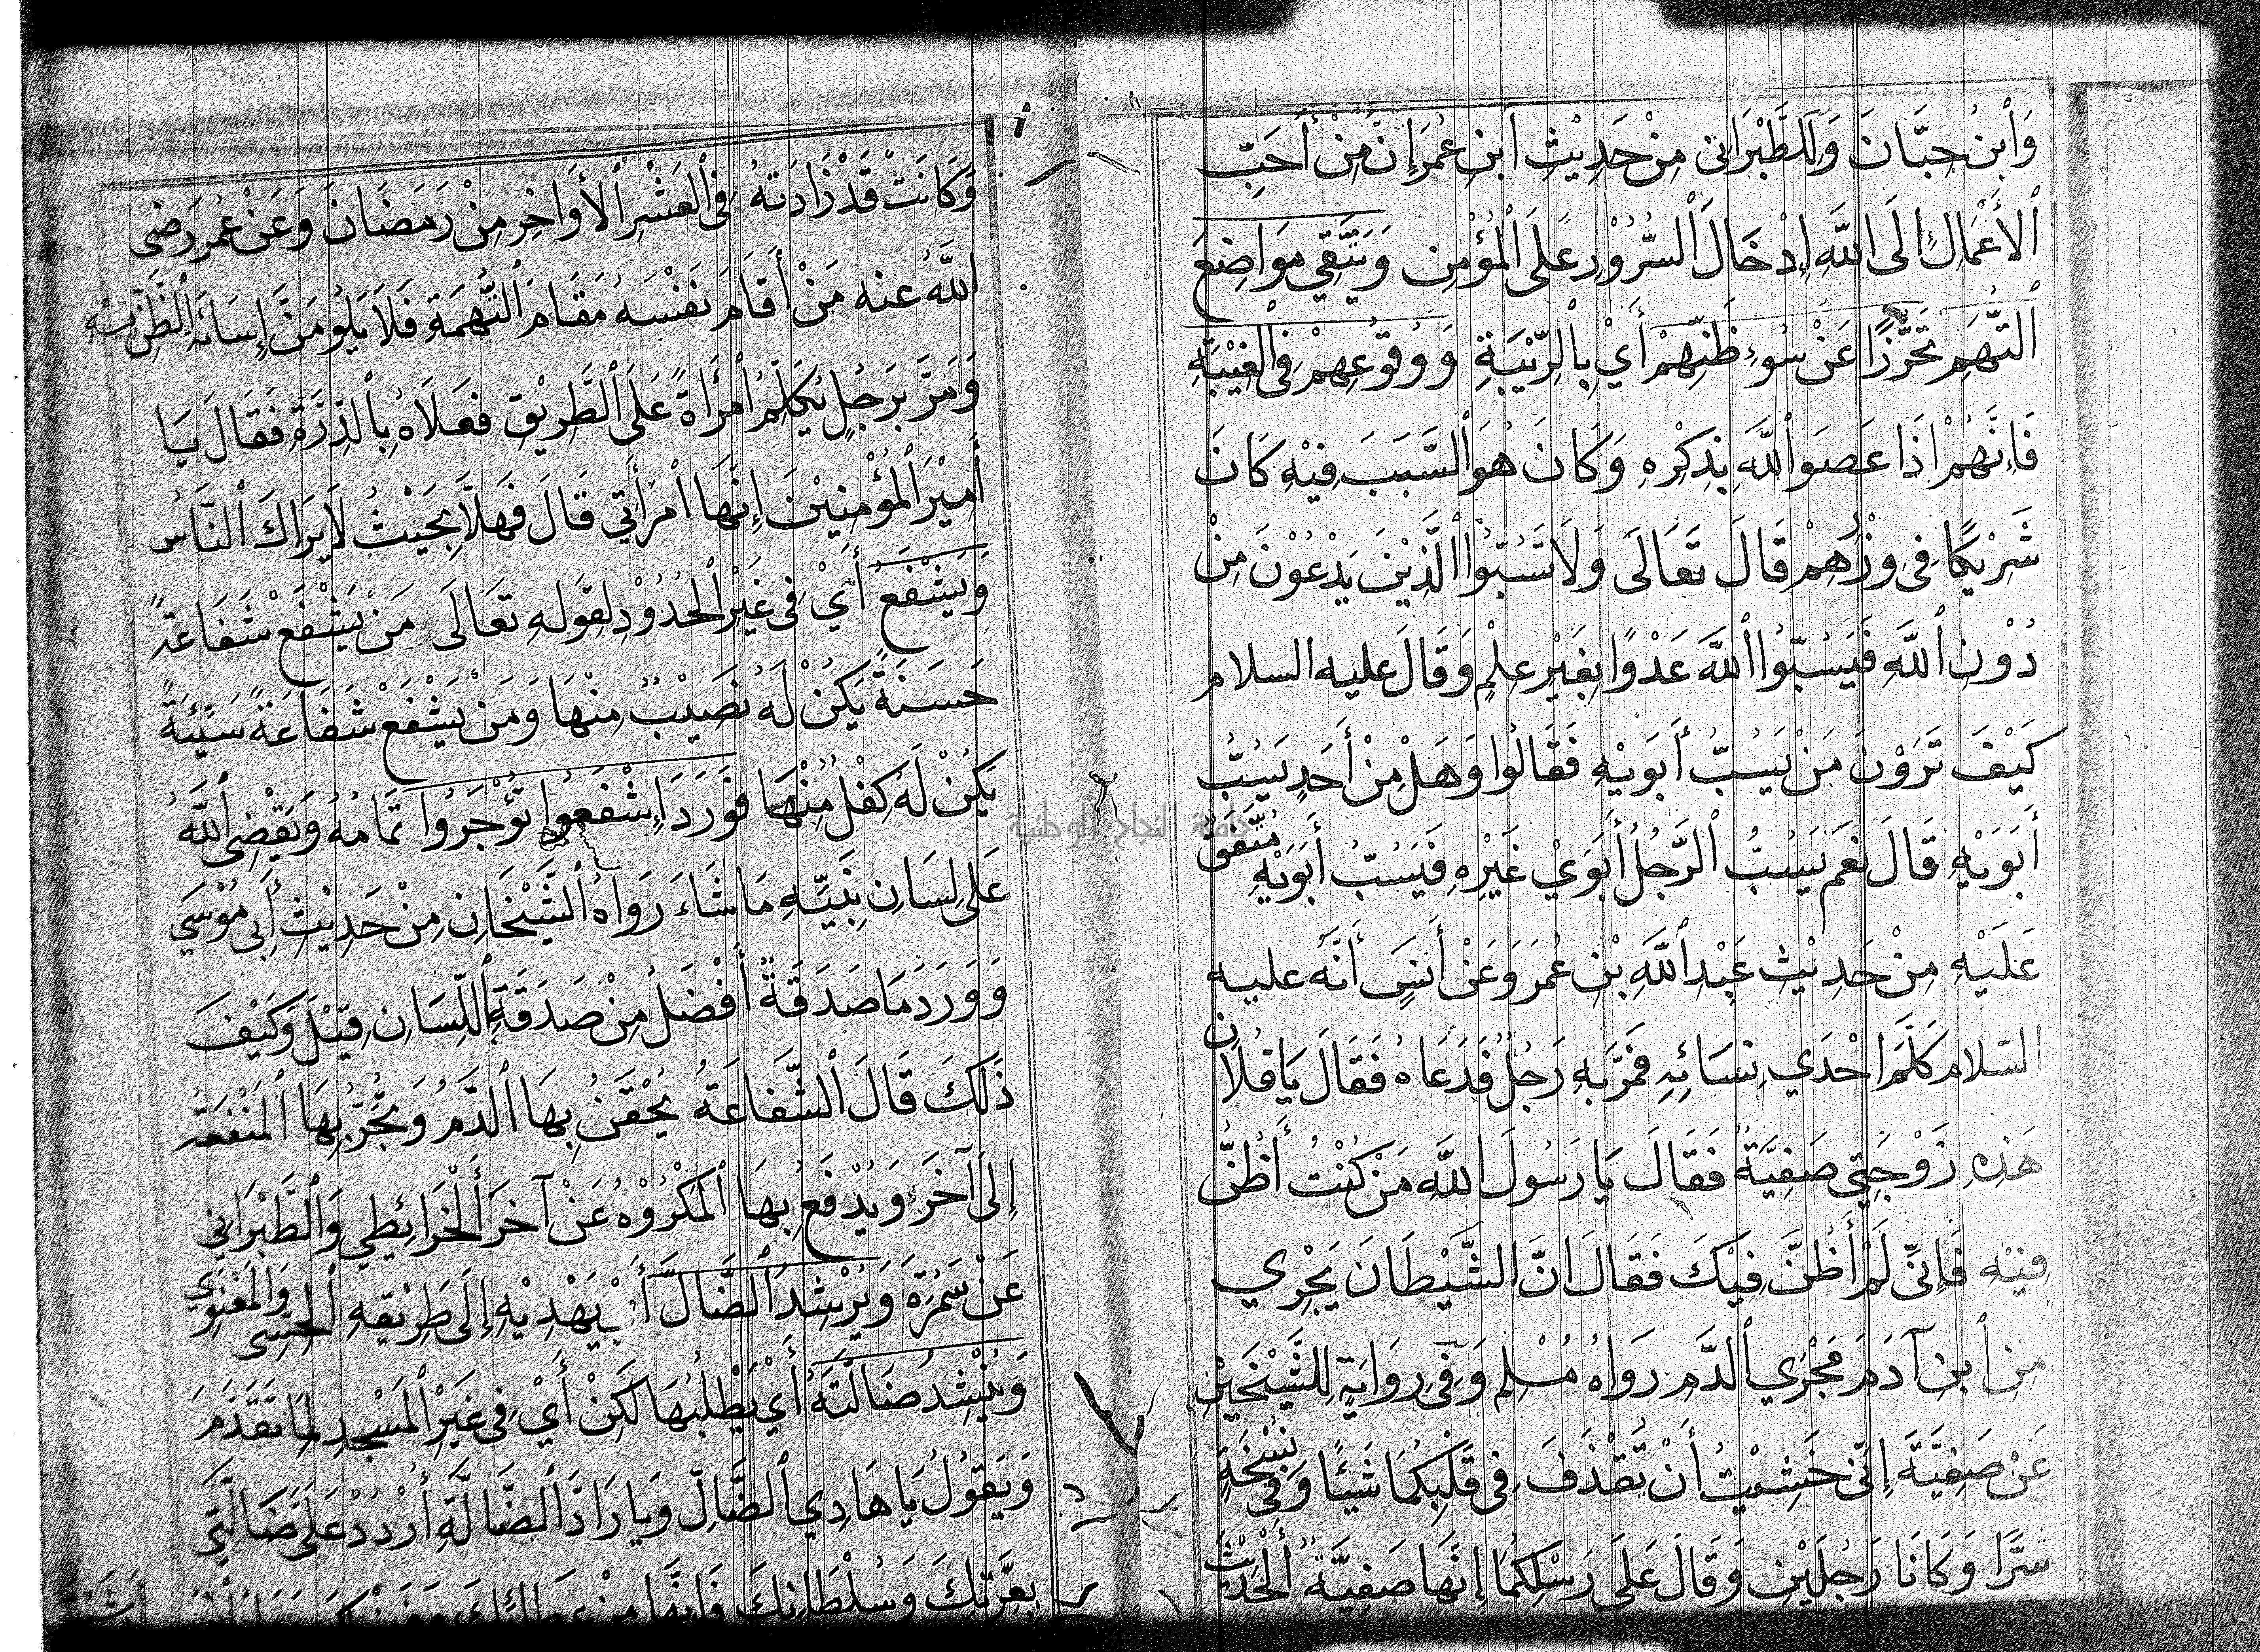 وَابْنُ حِبَّانَ وَالطَّبْرَانِي مِنْ حَدِيْثِ ابنِ عُمَرَ إِنَّ مِنْ أَحَبِّ
الأَعْمَالِ إلَى اللّٰهِ إِدْخَالَ السُّرُوْرِ عَلَى الْمُؤْمِنِ وَيَتَّقِي مَوَاضِعَ
التُّهَمِ تَحَرُّزًا عَنْ سُوءِ ظَنِّهِمْ أَيْ بِالرِّيْبَةِ وَوُقُوعِهِمْ فِي الْغِيْبَةِ
فَإِنَّهُمْ إذَا عَصَوُا اللّٰهَ بِذِكْرِهِ وَكَانَ هُوَ السَّبَبَ فِيْهِ كَانَ
شَرِيْكًا فِي وِزْرِهِمْ قَالَ تَعَالَى وَلَا تَسُبُّوا الَّذِيْنَ يَدْعُوْنَ مِنْ
دُوْنِ اللّٰهِ فَيَسُبُّوا اللّٰهَ عَدْوًا بِغَيْرِ عِلْمٍ وَقَالَ عليه السلام
كَيْفَ تَرَوْنَ مَنْ يَسُبُّ أَبَوَيْهِ فَقَالُوا وَهَلْ مِنْ أَحَدٍ يَسُبُّ
أَبَوَيْهِ قَالَ نَعَم يَسُبُّ الرَّجُلُ أَبَوَيْ غَيْرِهِ فَيَسُبُّ أَبَوَيْهِ مُتَّفَقٌ
عَلَيْهِ مِنْ حَدِيْثِ عَبْدِ اللّٰهِ بْنِ عُمَرَ وَعَنْ أَنَسٍ أَنَّهُ عليه
السّلام كَلَّمَ احْدَي نِسَائِهِ فَمَرَّ بِهِ رَجُلٌ فَدَعَاهُ فَقَالَ يَا فُلَانُ
هَذِهِ زَوْجَتِي صَفِيَّةُ فَقَالَ يَا رَسُولَ اللّٰهِ مَنْ كُنْتُ أَظُنُّ
فِيْهِ فَإِنِّي لَمْ أَظُنَّ فِيْكَ فَقَالَ انَّ الشَّيْطَانَ يَجْرِي
مِنِ ابنِ آدَمَ مَجْرَي الدَّمِ رَوَاهُ مُسْلِم وَفِي رِوَايَةٍ لِلشَّيْخَيْنِ
عَنْ صَفِيَّةَ إِنِّي خَشِيْتُ أَنْ يَقْذِفَ فِي قَلْبِكُمَا شَيْئًا وَفِي نُسْخَةٍ
شَرًّا وَكَانَا رَجُلَيْنِ وَقَالَ عَلَى رَسْلِكُمَا إِنَّهَا صَفِيَّةُ الْحَدِيْثَ
وَكَانَتْ قَدْ زَادَتهُ فِي الْعَشْرِ الأَوَاخِرِ مِنْ رَمَضَانَ وَعَنْ عُمَر رَضِى
اللّٰهُ عنه مَنْ أَقَامَ نَفْسَهُ مَقَامَ التُّهْمَةِ فَلَا يَلُوْمَنَّ إِسَاءَةِ الظَّنِّ بِهِ
وَمَرَّ بِرَجُلٍ يُكَلِّمُ امْرَأَةً عَلَى الطَّرِيْقِ فَعَلَاهُ بِالدِّرَّةِ فَقَالَ يَا
أَمِيْرَ الْمُؤْمِنِيْنَ إِنَّهَا امْرَأَتِي قَالَ فَهَلَّا بِحَيْثُ لَا يَرَاكَ النَّاسُ
وَيَشْفَعُ أَيْ فِي غَيْرِ الْحُدُوْدِ لِقَوْلِهِ تَعَالَى مَنْ يَشْفَعْ شَفَاعَةً
حَسَنَةً يَكُنْ لَهُ نَصِيْبٌ مِنْهَا وَمَنْ يَشْفَعْ شَفَاعَةً سَيِّئَةً
يَكُنْ لَهُ كِفْلٌ مِنْهَا وَوَرَدَ إِشْفَعُوا تُؤْجَرُوا تَمَامُهُ وَيَقْضِى اللّٰهُ
عَلَى لِسَانِ نَبِيِّهِ مَا شَاءَ رَوَاهُ الشَّيْخَانِ مِنْ حَدِيْثِ أَبِي مُوْسَي
وَوَرَدَ مَا صَدَقَةٌ أَفْضَلُ مِنْ صَدَقَةِ اللِّسَانِ قِيْلَ وَكَيْفَ
ذٰلِكَ قَالَ الشَّفَاعَةُ يُحْقَنُ بِهَا الدَّمُ وَتُجَرُّ بِهَا الْمَنْفَعَةُ
إِلَى آخَرَ وَيُدْفَعُ بِهَا الْمَكْرُوْهُ عَنْ آخَرَ أَلْخَرَائِطِي وَالطَّبْرَانِي
عَنْ سَمُرَةَ وَيُرْشِدُ الضَّالَّ أَيْ يَهْدِيْهِ إِلَى طَرِيْقِهِ الْحِسِّي وَالْمَعْنَوِي
وَيُنْشِدُ ضَالَّتَهُ أَيْ يَطْلُبُهَا لَكِنْ أَيْ فِي غَيْرِ الْمَسْجِدِ لِمَا تَقَدَّمَ
وَيَقُوْلُ يَا هَادِي الضَّالِّ وَيَا رَادَّ الضَّالَّةِ أُرْدُدْ عَلَيَّ ضَالَّتِي
بِعِزَّتِكَ وَسُلْطَانِكَ فَإِنَّهَا مِنْ عَطَائِكَ
جامعة النجاح الوطنية